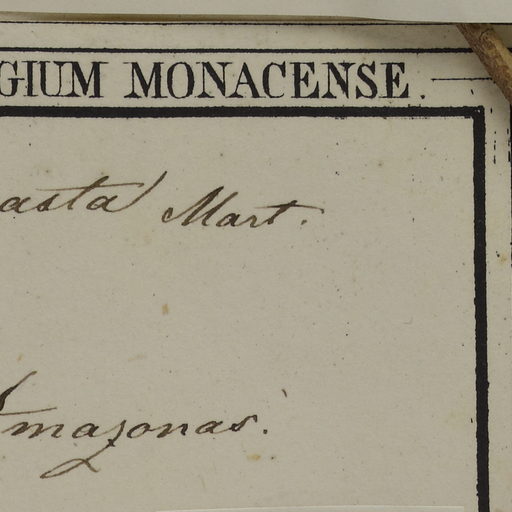 GIUM MONACENSE.
asta Mart.
Amazonas.